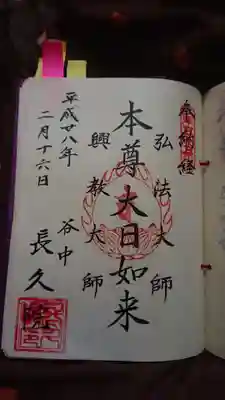 奉納経
弘法大師
本尊大日如来
興教大師
谷中
長久
平成廿八年
二月十六日